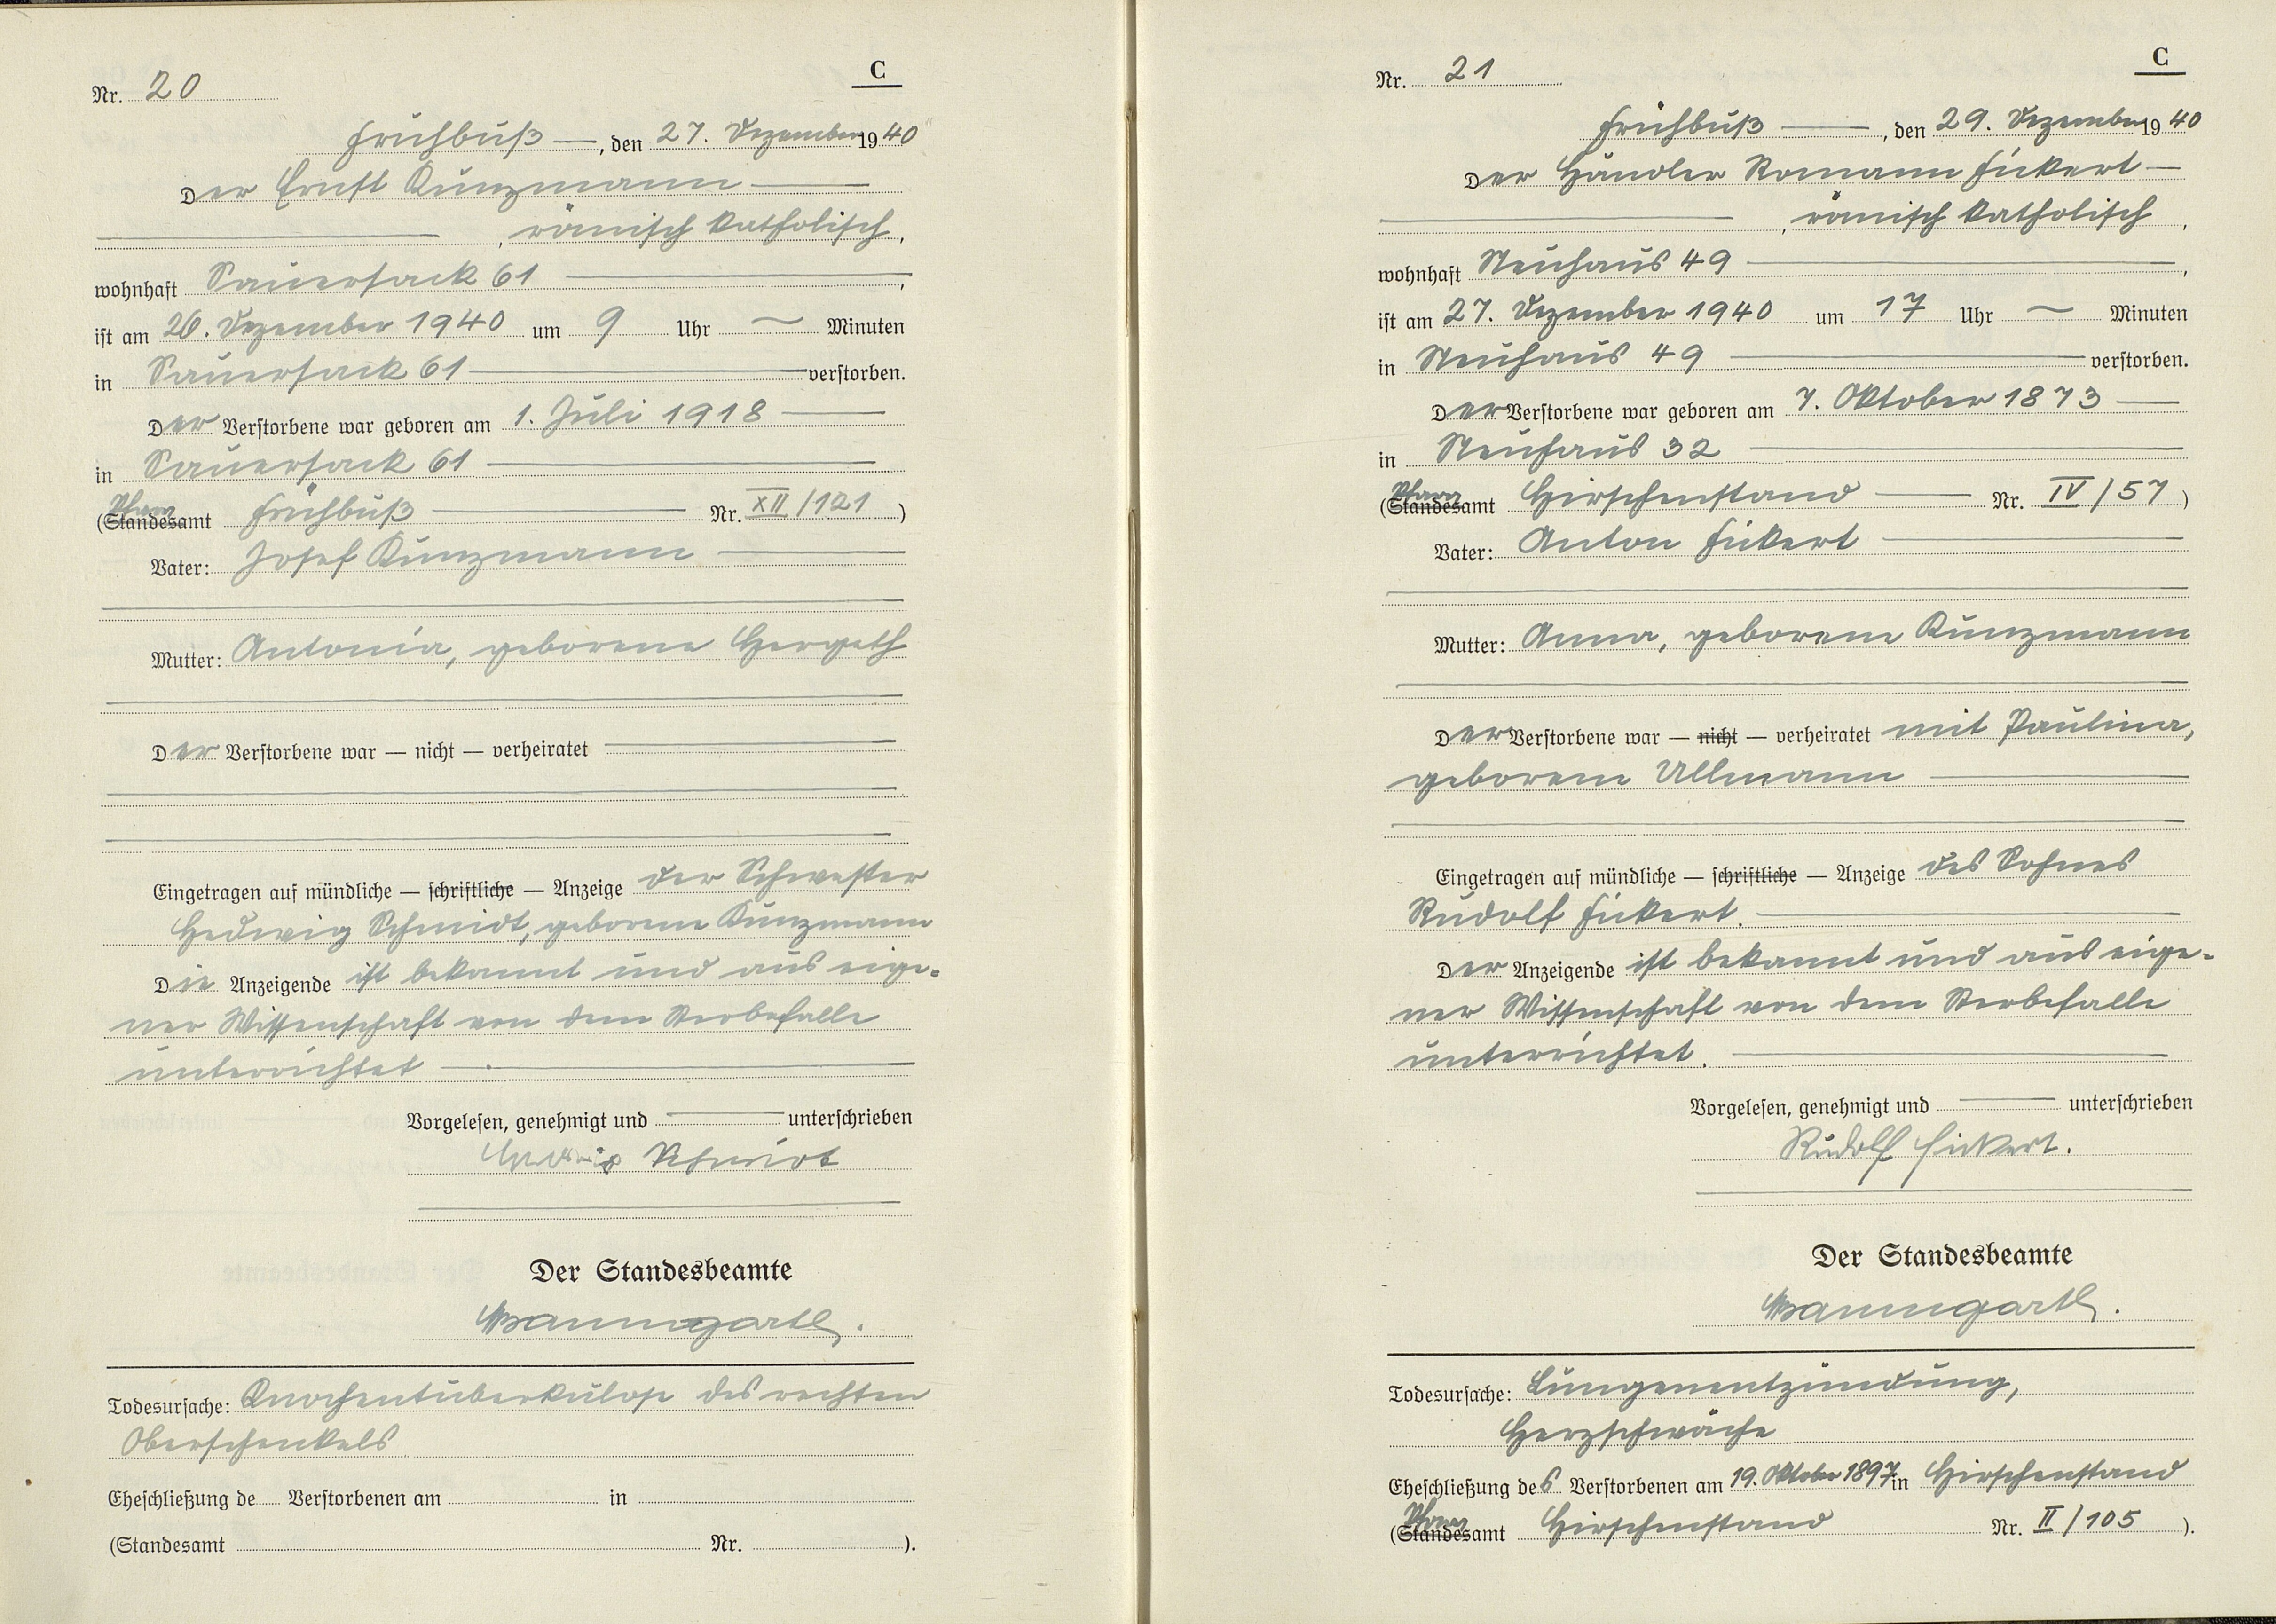 C
Nr. 20
Frühbuß —, den 27. Dezember 1940
Der Ernst Kunzmann —
—, römisch katholisch,
wohnhaft Sauersack 61 —,
ist am 26. Dezember 1940 um 9 Uhr — Minuten
in Sauersack 61 — verstorben.
Der Verstorbene war geboren am 1. Juli 1918 —
in Sauersack 61 —
Pfarr
(Standesamt Frühbuß — Nr. XII/121)
Vater: Josef Kunzmann —
Mutter: Antonia, geborene Hergeth
Der Verstorbene war — nicht — verheiratet —
Eingetragen auf mündliche — schriftliche — Anzeige der Schwester
Hedwig Schmidt, geborene Kunzmann
Die Anzeigende ist bekannt und aus eige-
ner Wissenschaft von dem Sterbefalle
unterrichtet —
Vorgelesen, genehmigt und — unterschrieben
Hedwig Schmidt
Der Standesbeamte
Baumgartl.
Todesursache: Knochentuberkulose des rechten
Oberschenkels
Eheschließung de Verstorbenen am in
(Standesamt Nr. ).
C
Nr. 21
Frühbuß —, den 29. Dezember 1940
Der Händler Romann Fickert —
—, römisch katholisch,
wohnhaft Neuhaus 49 —,
ist am 27. Dezember 1940 um 17 Uhr — Minuten
in Neuhaus 49 — verstorben.
Der Verstorbene war geboren am 7. Oktober 1873 —
in Neuhaus 32 —
Pfarr
(Standesamt Hirschenstand — Nr. IV/57)
Vater: Anton Fickert —
Mutter: Anna, geborene Kunzmann
Der Verstorbene war — nicht — verheiratet mit Paulina,
geborene Ullmann —
Eingetragen auf mündliche — schriftliche — Anzeige des Sohnes
Rudolf Fickert. —
Der Anzeigende ist bekannt und aus eige-
ner Wissenschaft von dem Sterbefalle
unterrichtet. —
Vorgelesen, genehmigt und — unterschrieben
Rudolf Fickert.
Der Standesbeamte
Baumgartl.
Todesursache: Lungenentzündung,
Herzschwäche
Eheschließung des Verstorbenen am 19. Oktober 1897 in Hirschenstand
Pfarr
(Standesamt Hirschenstand Nr. II/105 ).